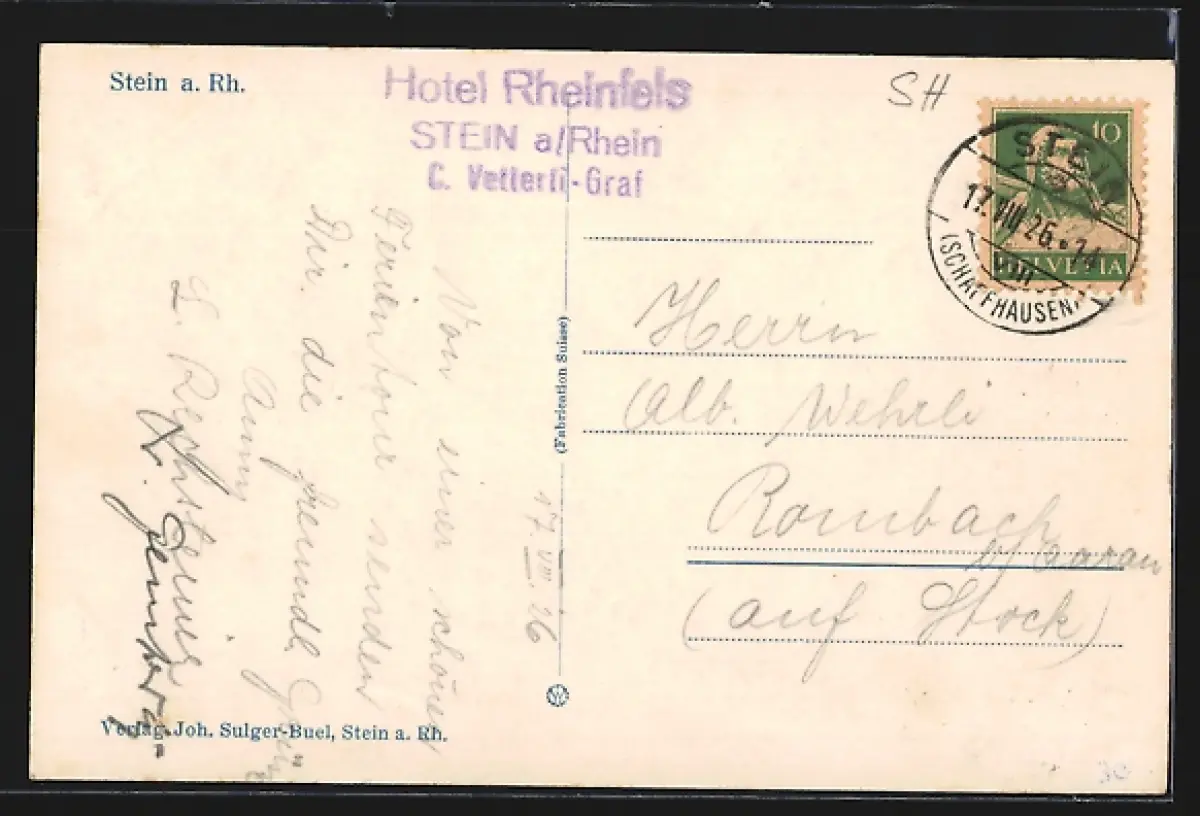 Stein a. Rh.
Hotel Rheinfels
STEIN a/Rhein
C. Vetterli-Graf
SH
10
STEIN
17.VIII.26.
(SCHAFFHAUSEN)
HELVETIA
17. VIII. 26
Von einer schönen
Ferientour senden
Dir die freundl. Grüße
Anny
(Fabrication Suisse)
Herrn
Alb. Wehrli
Rombach
b/ Aarau
(auf Stock)
Verlag Joh. Sulger-Buel, Stein a. Rh.
30